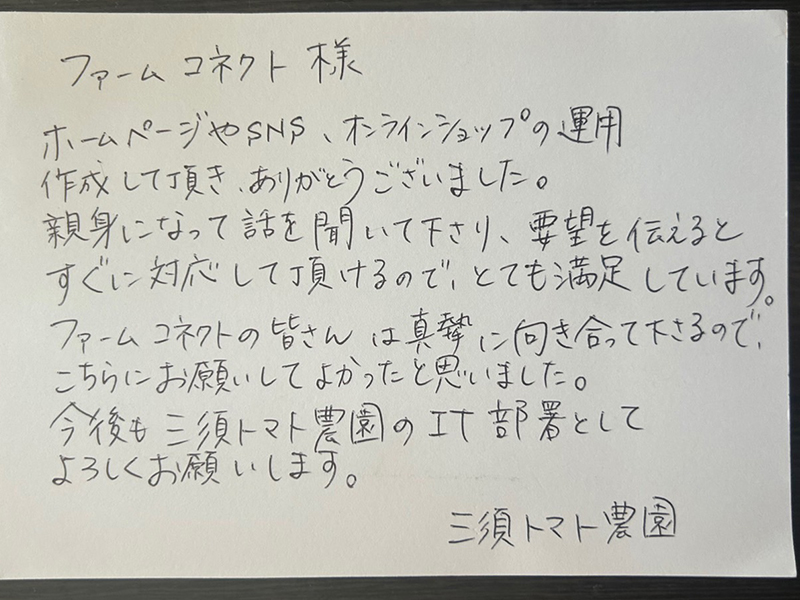 ファームコネクト様
ホームページやSNS、オンラインショップの運用
作成して頂き、ありがとうございました。
親身になって話を聞いて下さり、要望を伝えると
すぐに対応して頂けるので、とても満足しています。
ファームコネクトの皆さんは真摯に向き合って下さるので、
こちらにお願いしてよかったと思いました。
今後も三須トマト農園のIT部署として
よろしくお願いします。
三須トマト農園